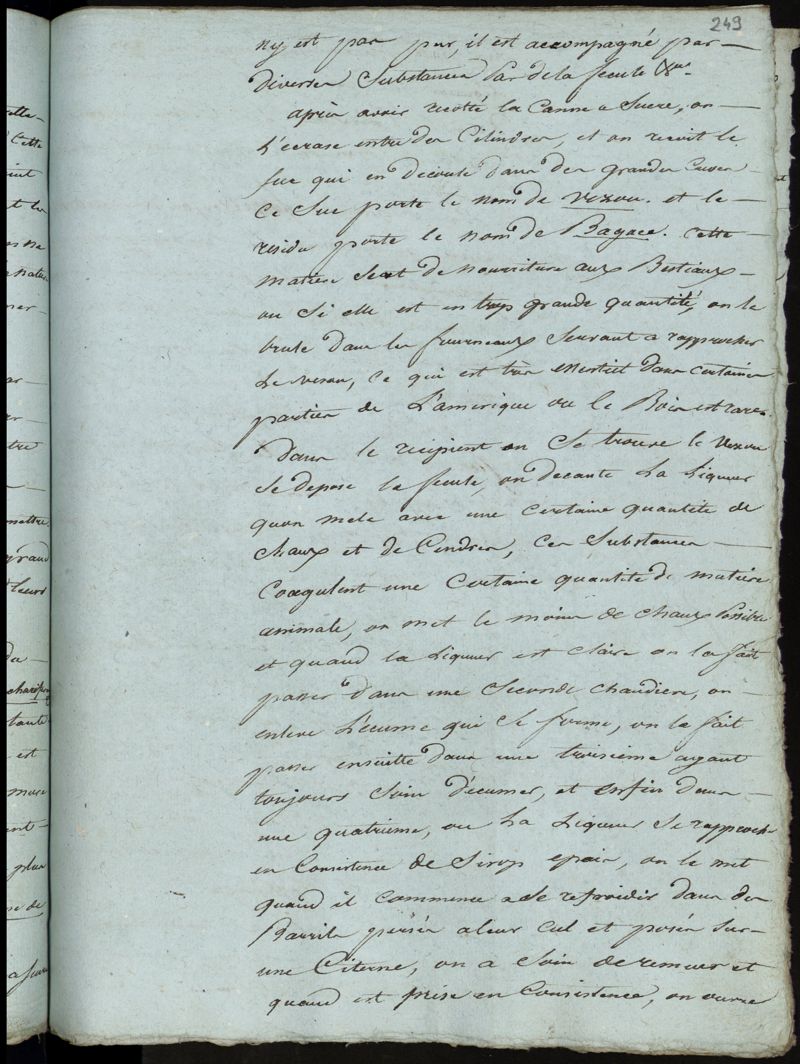 249
n'y est pas pur, il est accompagné par
diverses Substances par de la fecule &ca.
après avoir recolté la Canne a Sucre, on
L'ecrase entre des Cilindres, et on recoit le
suc qui en decoule dans des grandes Cuves
Ce Suc porte le nom de vezou. et le
residu porte le nom de Bagace. cette
matiere Sert de nourriture aux Bestiaux
ou Si elle est en trop grande quantité, on la
brule dans les fourneaux Servant a rapprocher
Le vesou, ce qui est très essentiel dans certaines
parties de L'amerique ou le Bois est rare.
dans le recipient ou Se trouve le vezou
Se depose la fecule, on decante La Liqueur
quon mele avec une certaine quantité de
Chaux et de Cendres, ces Substances
Coagulent une certaine quantité de matiere
animale, on met le moins de chaux Possible
et quand la Liqueur est claire on la fait
passer dans une Seconde chaudiere, on
enleve L'écume qui Se forme, on la fait
passer ensuitte dans une troisieme ayant
toujours Soin d'écumer, et enfin dans
une quatrieme, ou La Liqueur Se rapproche
en Consistence de Sirop epais, on le met
quand il commence a Se refroidir dans des
Barrils persés a leur Cul et posés Sur
une Citerne, on a Soin de remuer et
quand est prise en Consistence, on ouvre